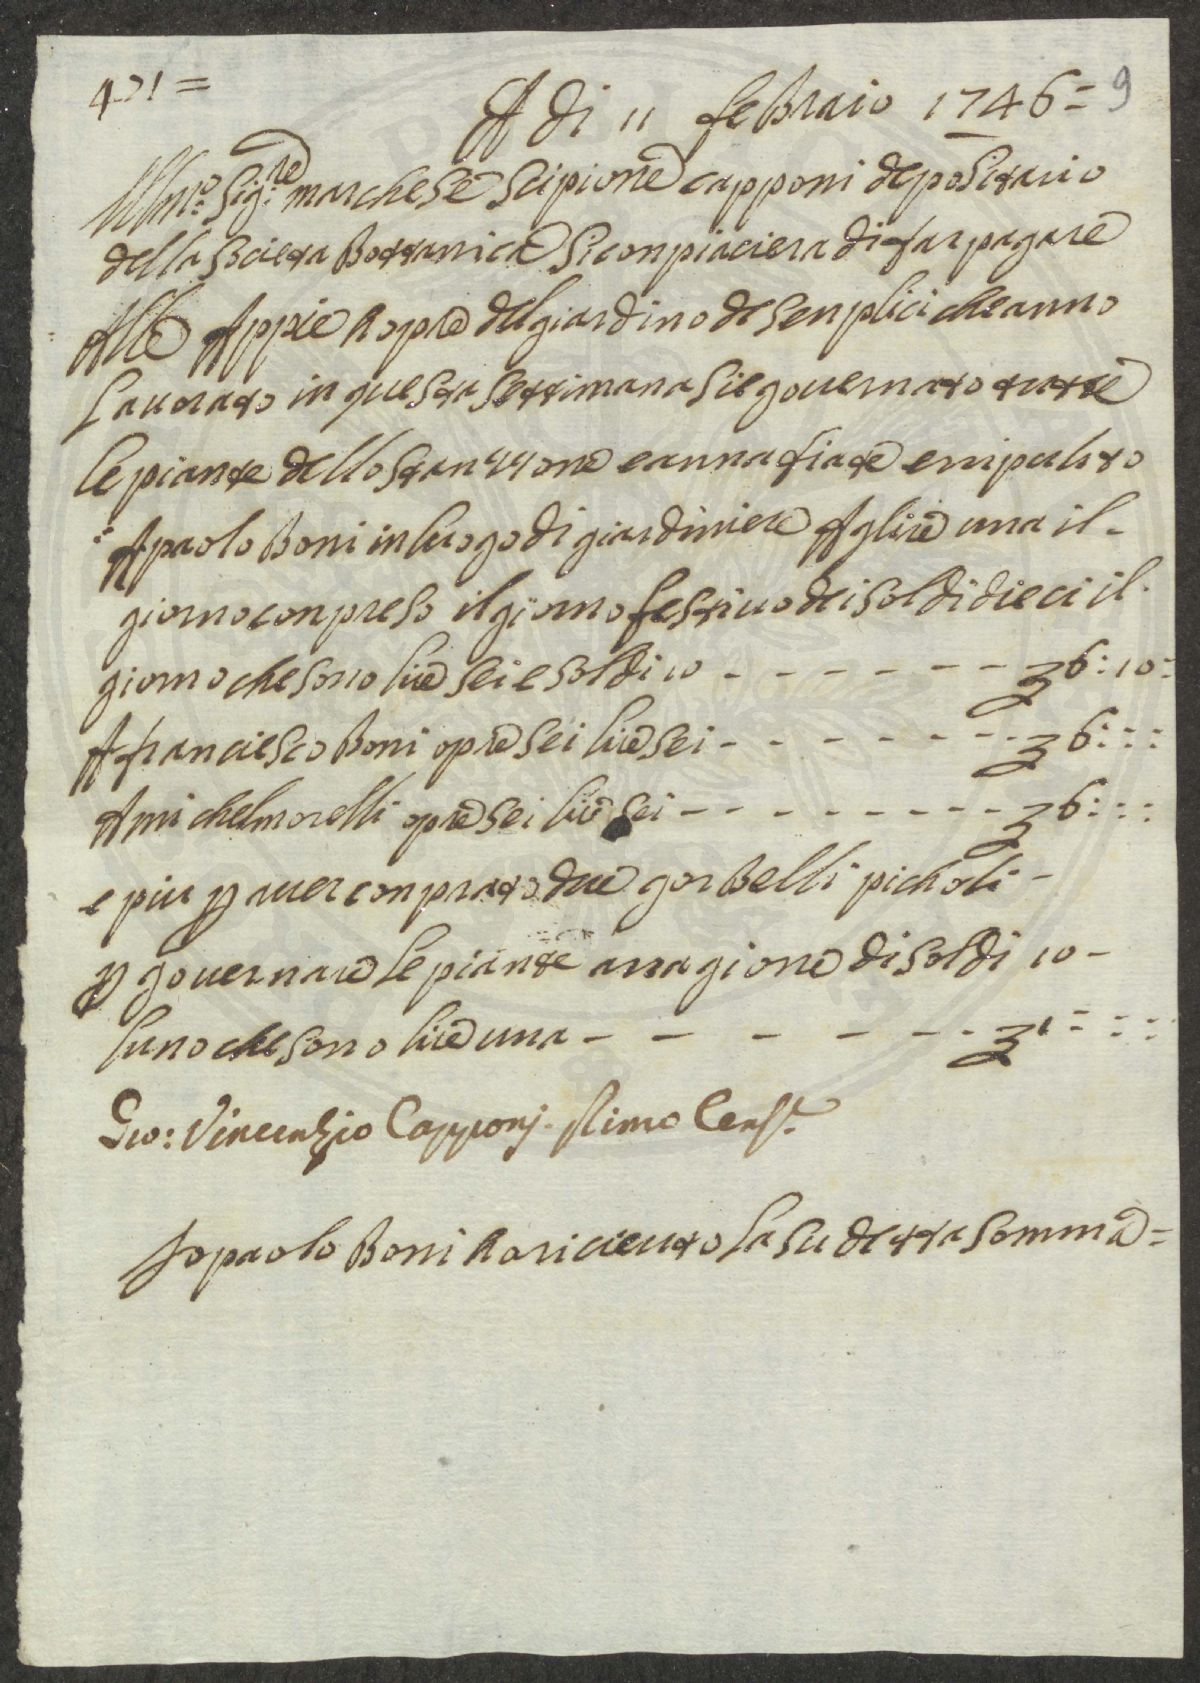 421 =
9
A di 11 febraio 1746 =
Illmo: Sig:re marchese Scipione capponi depositario
della Societa Bottanica Si conpiaciera di far pagare
Alle Appie hopre del giardino de Senplici che anno
Lauorato in questa Settimana Sie gouernato tutte
le piante dello Stanzone e annafiate e ripulito
: A paolo Boni in luogo di giardiniere A lire una il -
giorno conpreso il giorno festiuo dei soldi dieci il
giorno che sono lire sei e soldi 10 - - - - - - - 6: 10:
A franciesco Boni opre sei lire sei - - - - - - - 6: : :
A michel morelli opre sei lire sei - - - - - - - - 6: : :
e piu p auer conprato due gorbelli picholi -
p gouernare le piante arragione di soldi 10 -
luno che sono lire una - - - - - - - 1: : :
Gio: Vincenzio Capponj. Primo Cens.e
Io paolo Boni ho riceuuto la su detta somma =